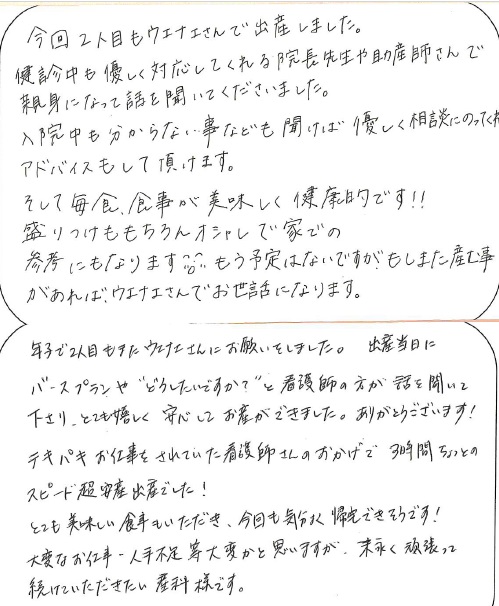 今回2人目もウエナエさんで出産しました。
健診中も優しく対応してくれる院長先生や助産師さんで
親身になって話を聞いてくださいました。
入院中も分からない事なども聞けば優しく相談にのってくれ
アドバイスもして頂けます。
そして毎食、食事が美味しく健康的です!!
盛りつけももちろんオシャレで家での
参考にもなります もう予定はないですが、もしまた産む事
があれば、ウエナエさんでお世話になります。
年子で2人目もまたウエナエさんにお願いをしました。 出産当日に
バースプランや"どうしたいですか?"と看護師の方が話を聞いて
下さり、とても嬉しく安心してお産ができました。ありがとうございます!
テキパキお仕事をされていた看護師さんのおかげで3時間ちょっとの
スピード超安産出産でした!
とても美味しい食事もいただき、今回も気分よく帰宅できそうです!
大変なお仕事・人手不足等大変かと思いますが、末永く頑張って
続けていただきたい産科様です。